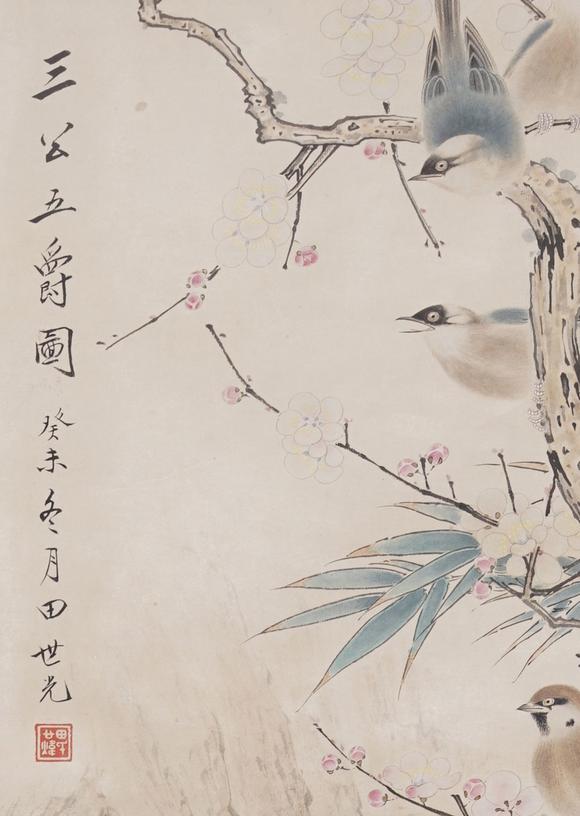 三公五爵圖 癸未冬月田世光